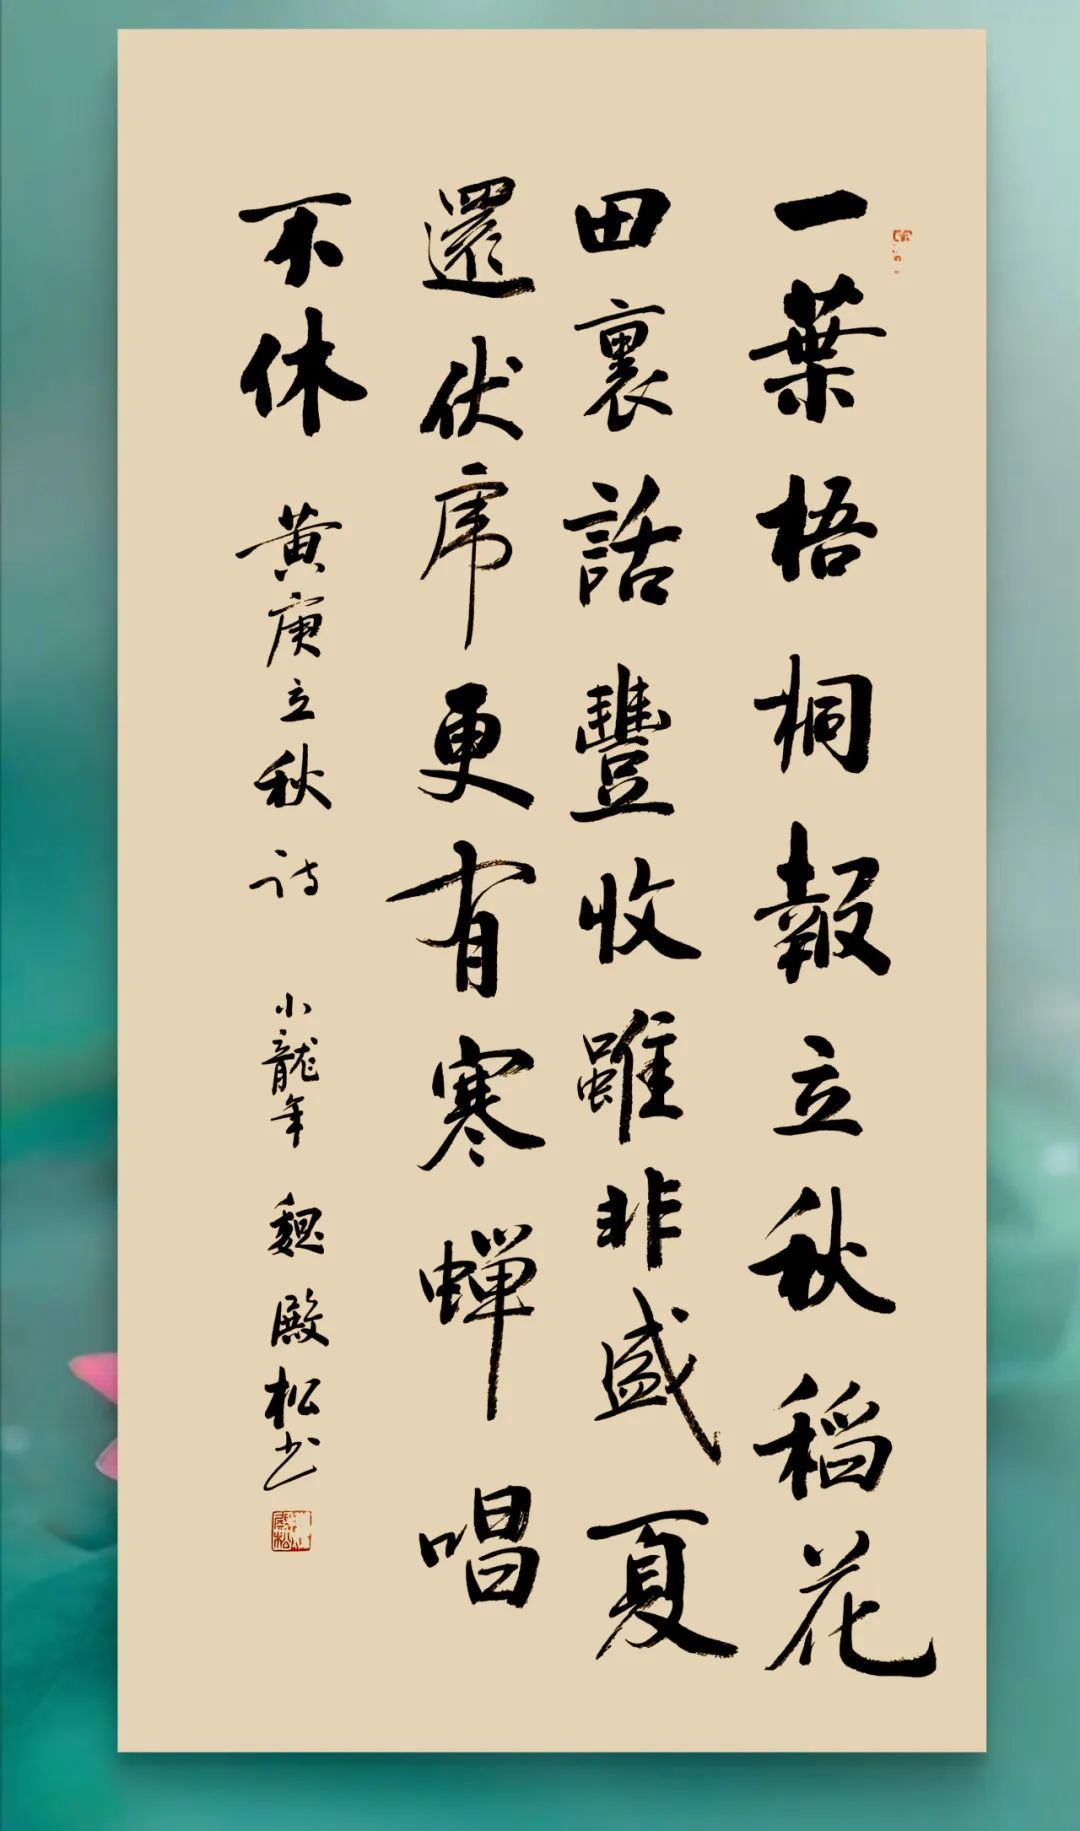 一葉梧桐報立秋稻花
田裏話豐收雖非盛夏
還伏虎更有寒蟬唱
不休
黄庚立秋诗 小龍年 魏殿松书
殿松